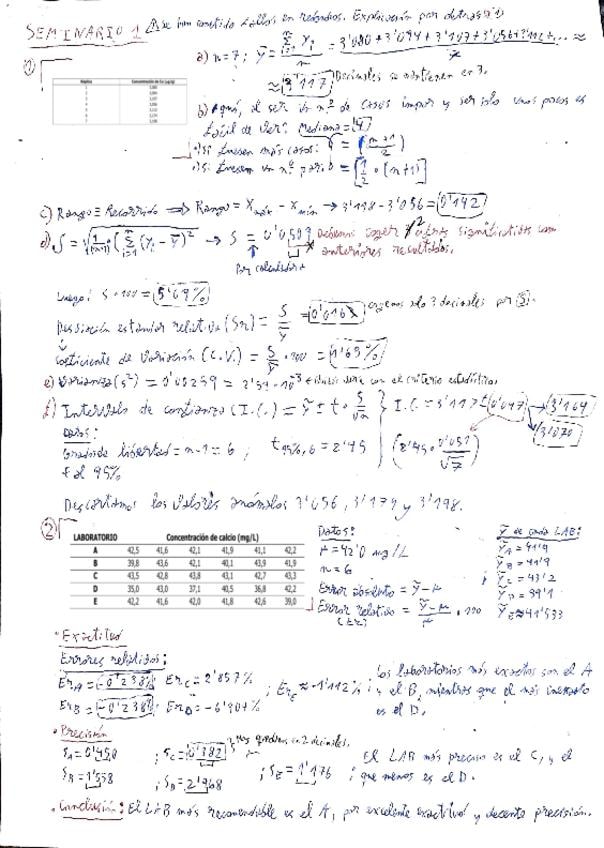 SEMINARIO 1 se han cometido fallos en redondeos. Explicación por detrás
① a) n=7; ȳ = Σ yᵢ / n = 3'080+3'094+3'107+3'056+3'112+... ≈
≈ 3'117 Decimales se mantienen en 3.
Réplica
b) Aquí, al ser un nº de casos impar y ser solo unos pocos es
fácil de ver: Mediana = 4
Si fuesen más casos: = (n+1/2)
Si fuesen un nº par = [1/2 · (n+1)]
c) Rango ≡ Recorrido ⇒ Rango = Xmáx - Xmín → 3'198 - 3'056 = 0'142
d) S = → S = 0'0509 Debemos coger 2 cifras significativas con
anteriores resultados.
Por calculadora
Luego: S·100 = 5'09%
Desviación estándar relativa (Sr) = S/ȳ = 0'016 cogemos solo 3 decimales por
Coeficiente de Variación (C.V.) = S/ȳ · 100 = 1'65%
e) Varianza (s²) = 0'00259 = 2'59·10⁻³
f) Intervalo de confianza (I.C.) = ȳ ± t · S/√n } I.C. = 3'117 ± 0'047 → 3'164
3'070
Datos:
Grados de libertad = n-1 = 6; t 95%, 6 = 2'45 (2'45 · 0'051/√7)
t al 95%
Descartamos los valores anómalos 3'056, 3'179 y 3'198.
②
LABORATORIO Concentración de calcio (mg/L)
A 42,5 41,6 42,1 41,9 41,1 42,2
B 39,8 43,6 42,1 40,1 43,9 41,9
C 43,5 42,8 43,8 43,1 42,7 43,3
D 35,0 43,0 37,1 40,5 36,8 42,2
E 42,2 41,6 42,0 41,8 42,6 39,0
Datos:
μ = 42'0 mg/L
n = 6
Error absoluto = ȳ - μ
Error relativo = ȳ - μ / μ · 100
(Er)
ȳ de cada LAB:
ȳA = 41'9
ȳB = 41'9
ȳC = 43'2
ȳD = 39'1
ȳE ≈ 41'533
• Exactitud
Errores relativos:
ErA = -0'238%; ErC = 2'857%; ErE ≈ -1'112%;
ErB = -0'238%; ErD = -6'904%
Los laboratorios más exactos son el A
y el B, mientras que el más inexacto
es el D.
• Precisión
SA = 0'490; SC = 0'382 nos quedamos en 2 decimales.
SB = 1'558; SD = 2'968; SE = 1'176
El LAB más preciso es el C, y el
que menos es el D.
• Conclusión: El LAB más recomendable es el A, por excelente exactitud y decente precisión.